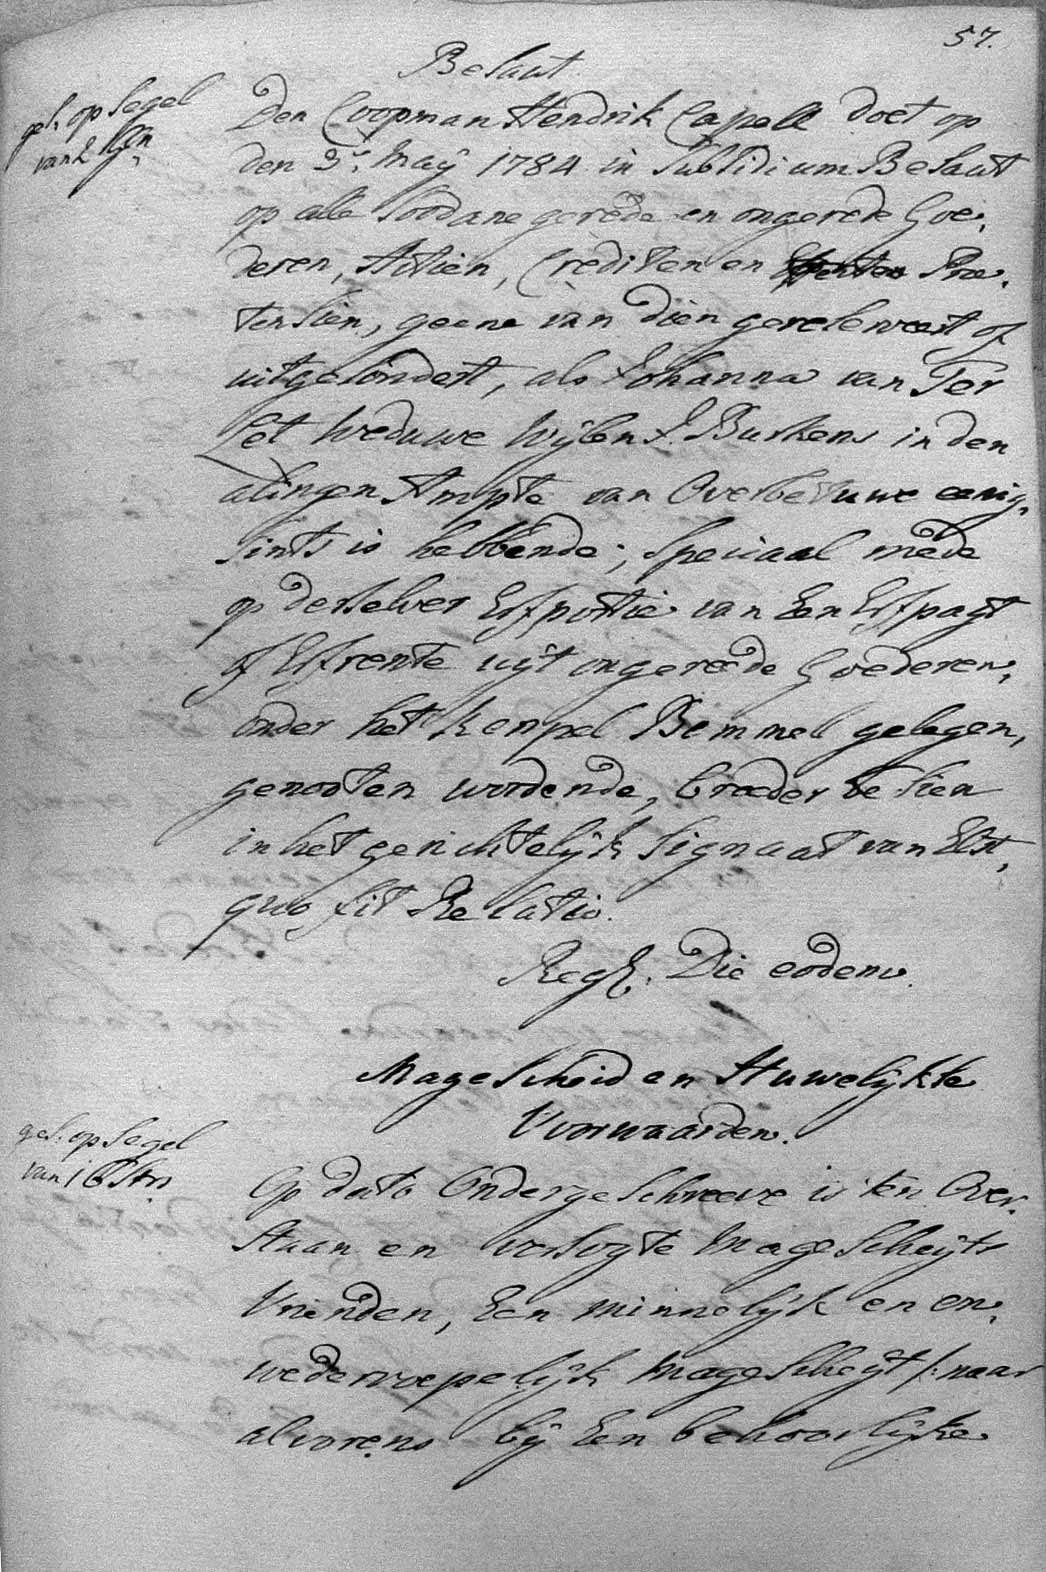 57.
Besaat
ges. op Segel
van 2 
Den Coopman Hendrik Capell doet op
den 3e. Maÿ 1784 in Subsidium Besaat
op alle Soodane gerede en ongerede Goe,
deren, Actien, Crediten en Præ,
tensien, geene van dien gereserveert of
uitgesondert, als Johanna van Ter
Let Weduwe Wÿlen J. Burkens in den
alingen Ampte van Overbetuwe eenig,
sints is hebbende; Speciaal mede
op derselver Erfportie van Een Erfpagt
of Erfrente uÿt ongereede Goederen,
onder het Kerspel Bemmel gelegen,
genooten wordende, breeder te sien
in het gerichtelÿk Signaat van Elst,
quo fit Relatio.
Regt. Die eodem.
Magescheid en Huwelÿkse
Voorwaarden.
ges. op Segel
van 16 Strs
Op dato Ondergeschreeve is ten Over,
staan en versogte Magescheÿts
Vrienden, Een minnelÿk en on,
wederroepelÿk Magescheÿt /: naar
alvorens bÿ Een behoorlÿke